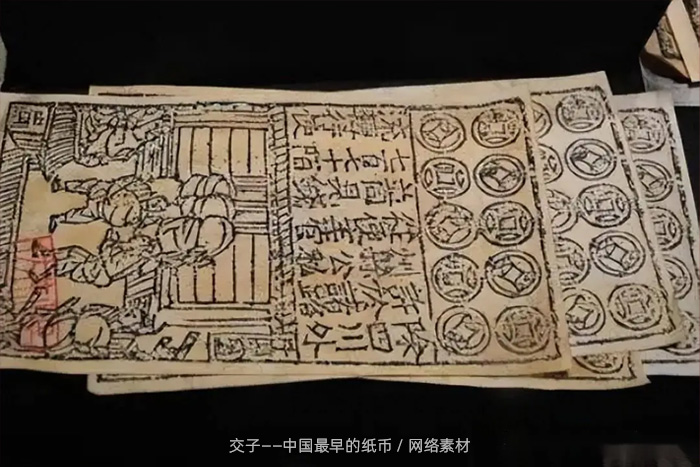 除四川外
許於諸路
州縣公私
從便主管
並同見錢
七百七十陌
流轉行使
交子——中国最早的纸币 / 网络素材